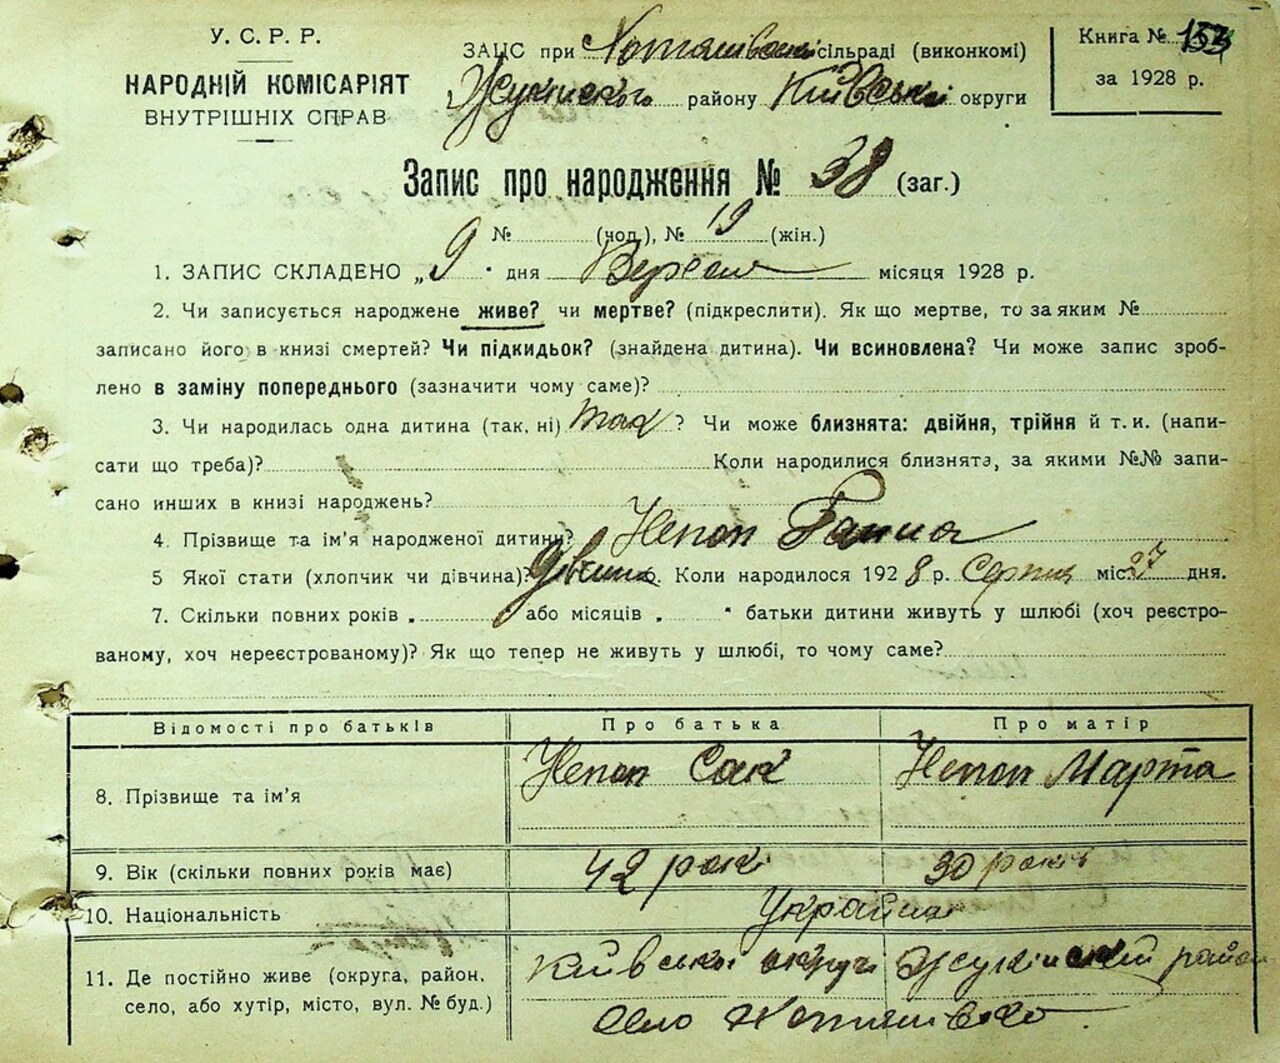 У. С. Р. Р.
НАРОДНІЙ КОМІСАРІЯТ
ВНУТРІШНІХ СПРАВ
ЗАЦС при Хотянівській сільраді (виконкомі)
Жукинского району Київської округи
Книга № 153
за 1928 р.
Запис про народження № 38 (заг.)
№ (чол.), № 19 (жін.)
1. ЗАПИС СКЛАДЕНО „9" дня Вересня місяця 1928 р.
2. Чи записується народжене живе? чи мертве? (підкреслити). Як що мертве, то за яким №
записано його в книзі смертей? Чи підкидьок? (знайдена дитина). Чи всиновлена? Чи може запис зроб-
лено в заміну попереднього (зазначити чому саме)?
3. Чи народилась одна дитина (так, ні) так ? Чи може близнята: двійня, трійня й т. и. (напи-
сати що треба)? Коли народилися близнята, за якими №№ запи-
сано инших в книзі народжень?
4. Прізвище та ім'я народженої дитини? Непоп Ганна
5 Якої стати (хлопчик чи дівчина)? дівчина 6. Коли народилося 1928 р. Серпня міс. 27 дня.
7. Скільки повних років „ " або місяців „ " батьки дитини живуть у шлюбі (хоч реєстро-
ваному, хоч нереєстрованому)? Як що тепер не живуть у шлюбі, то чому саме?
Відомості про батьків Про батька Про матір
8. Прізвище та ім'я Непоп Сак Непоп Марта
9. Вік (скільки повних років має) 42 рокі 30 років
10. Національність Україн
11. Де постійно живе (округа, район, село, або хутір, місто, вул. № буд.) Київської округи Жукинський район
село Хотянівка.